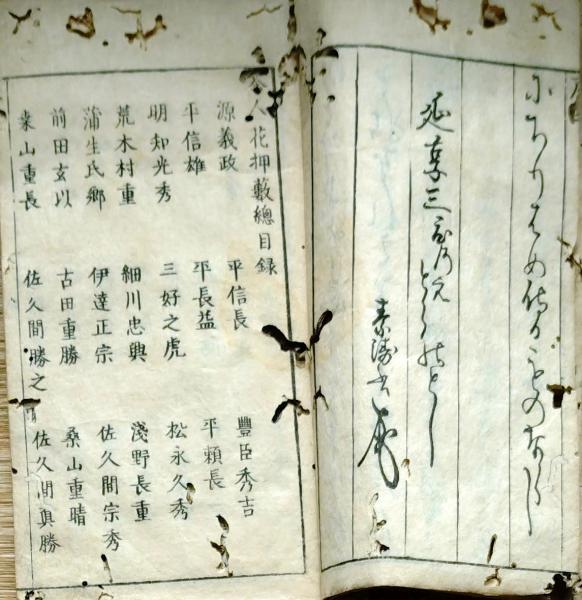 にちりはめ侍るものならし
延享三ひのえとらのとし
人花押藪總目録
源義政　平信長　豐臣秀吉
平信雄　平長益　平頼長
明知光秀　三好之虎　松永久秀
荒木村重　細川忠興　淺野長重
蒲生氏郷　伊達正宗　佐久間宗秀
前田玄以　古田重勝　桑山重晴
桒山重長　佐久間勝之　佐久間眞勝